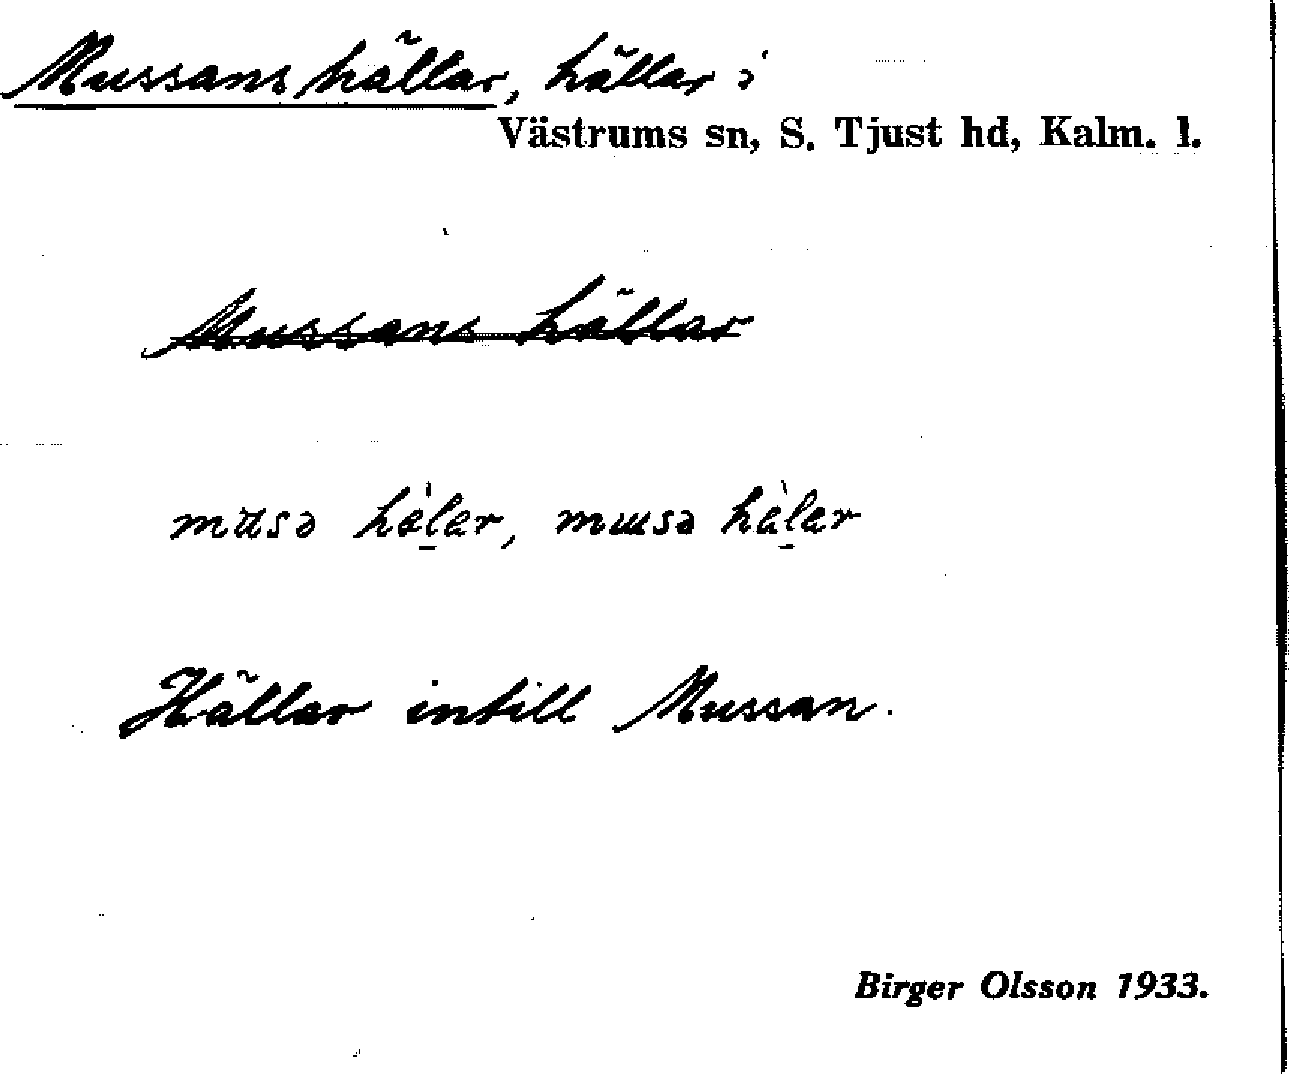 Mussans hällar, hällar i
Västrums sn, S. Tjust hd, Kalm. l.
Mussans hällar
Hällar intill Mussan.
Birger Olsson 1933.